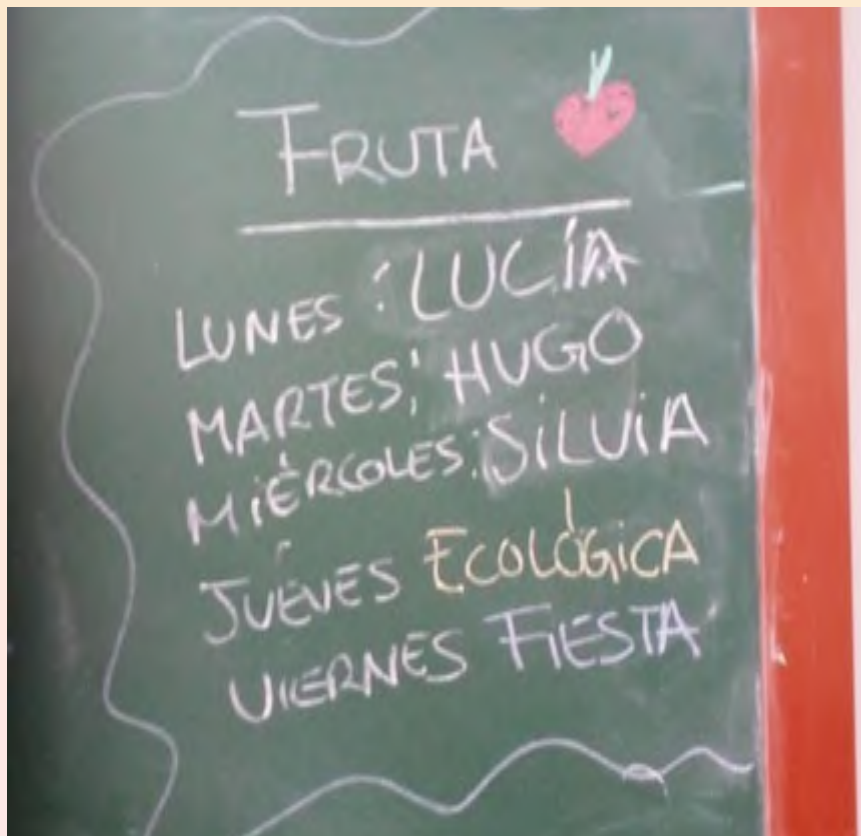 FRUTA
LUNES: LUCÍA
MARTES: HUGO
MIÉRCOLES: SILVIA
JUEVES ECOLÓGICA
VIERNES FIESTA